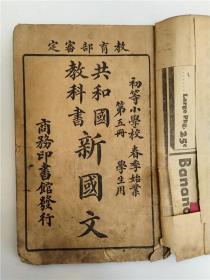 教育部審定
初等小學校 春季始業
第五冊 學生用
共和國
教科書
新國文
商務印書館發行
Large Pkg. 25¢
Banana